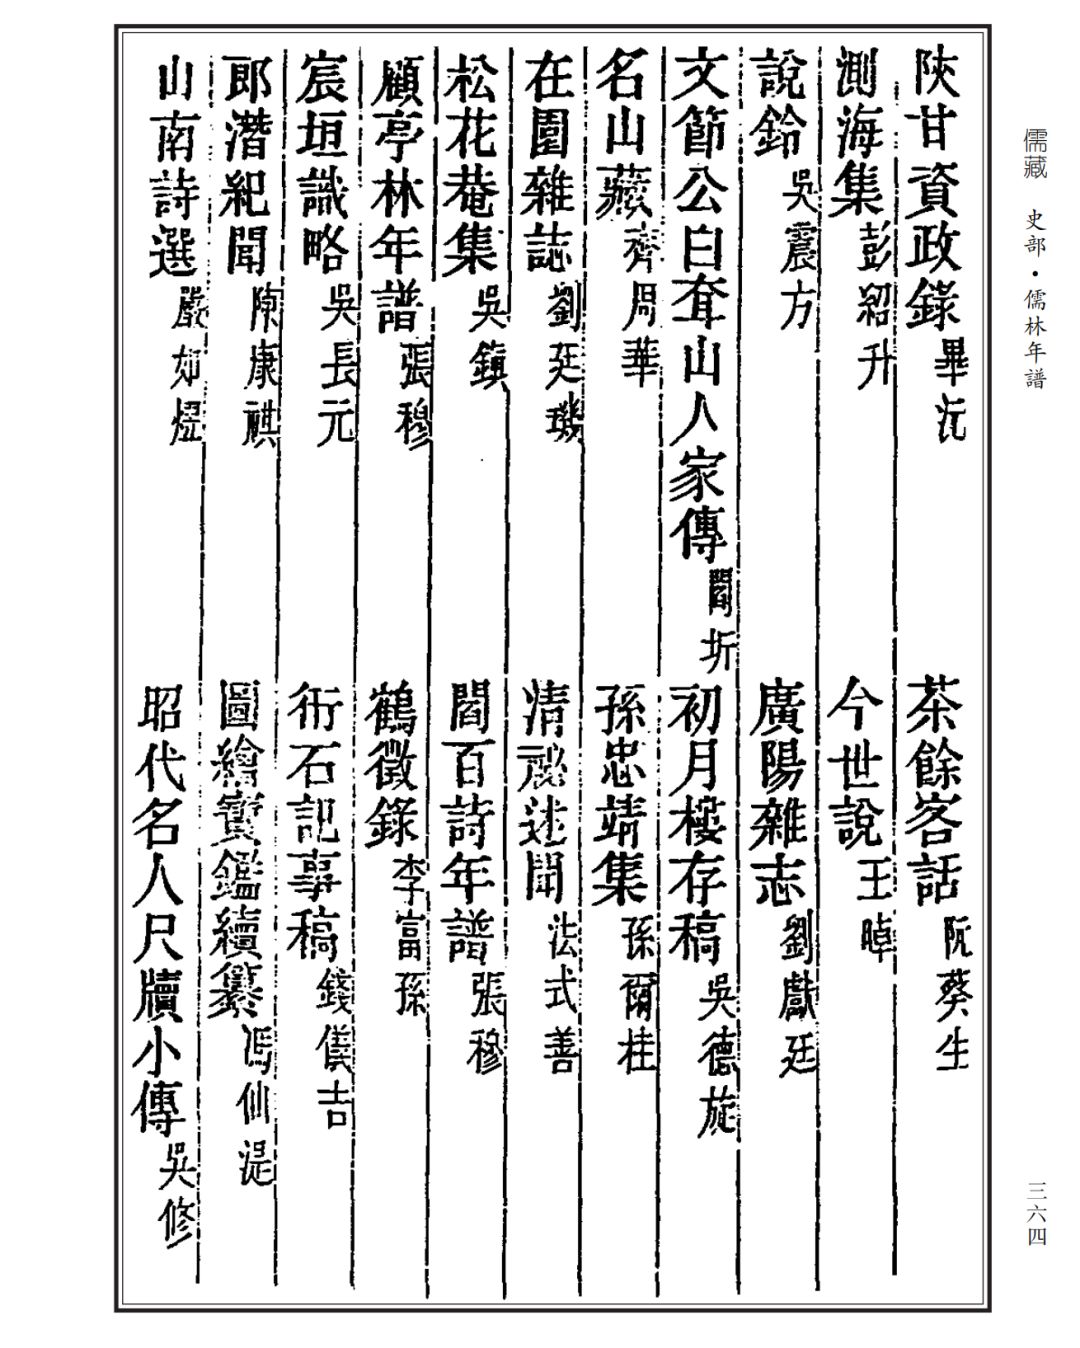 儒藏 史部·儒林年譜
陝甘資政錄 畢沅 茶餘客話 阮葵生
測海集 彭紹升 今世說 王晫
說鈴 吳震方 廣陽雜志 劉獻廷
文節公白耷山人家傳 閻圻 初月樓存稿 吳德旋
名山藏 齊周華 孫忠靖集 孫爾桂
在園雜誌 劉廷璣 清祕述聞 法式善
松花菴集 吳鎮 閻百詩年譜 張穆
顧亭林年譜 張穆 鶴徵錄 李富孫
宸垣識略 吳長元 衎石記事稿 錢儀吉
郎潛紀聞 陳康祺 圖繪寶鑑續纂 馮仙湜
山南詩選 嚴如熤 昭代名人尺牘小傳 吳修
三六四